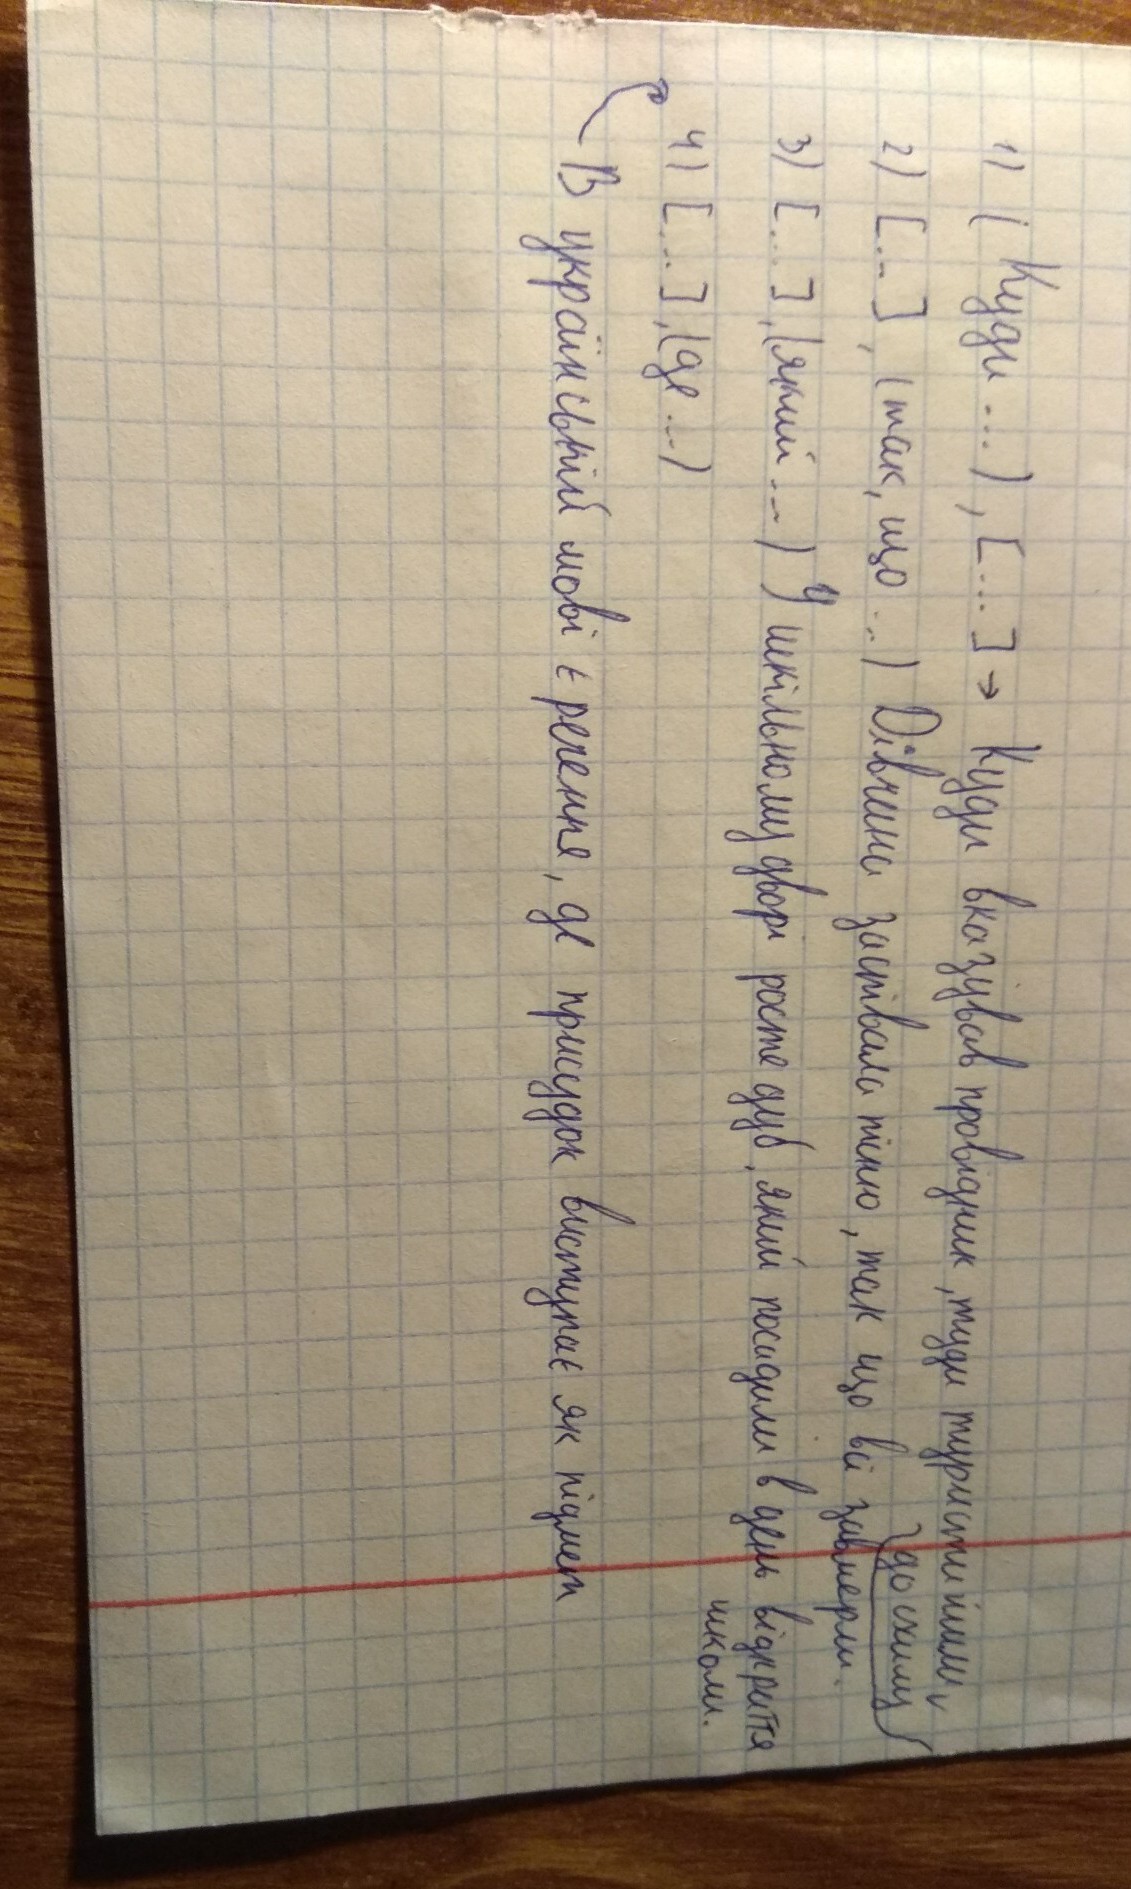 1) (Куди ...), [...] → Куди вказував провідник, туди туристи йшли,
до схилу
2) [...], (так, що ...) Дівчина заспівала пісню, так що всі завмерли.
3) [...], (який ...) У шкільному дворі росте дуб, який посадили в день відкриття
школи.
4) [...], (де ...)
В українській мові є речення, де присудок виступає як підмет